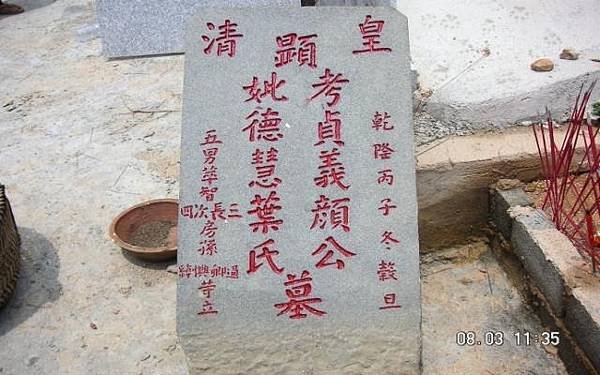 皇清
乾隆丙子冬穀旦
顯
考貞義顏公
妣德慧葉氏
墓
五男華智
三長次四
房孫
興卿
等立
08.03 11:35